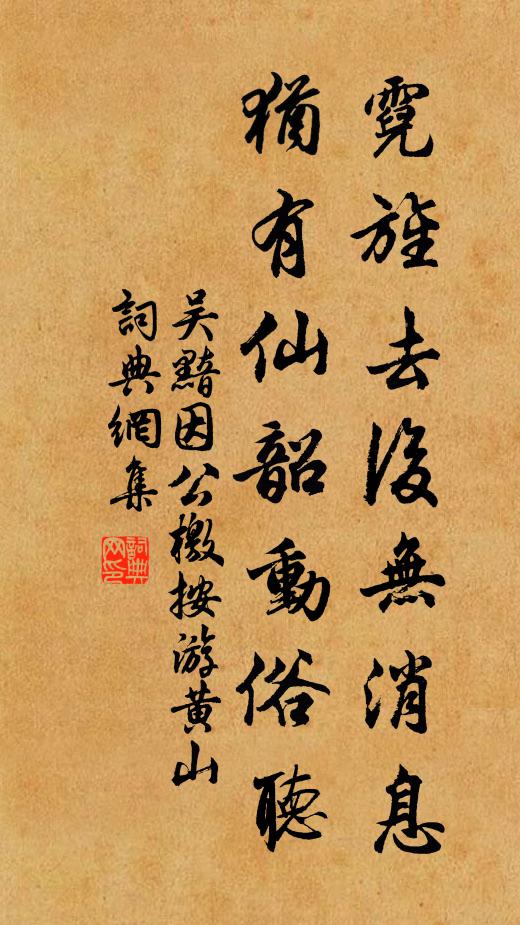 霓旌去後無消息
猶有仙韶動俗聽
吴黯因公檄按游黄山
詞典網集
詞典网印